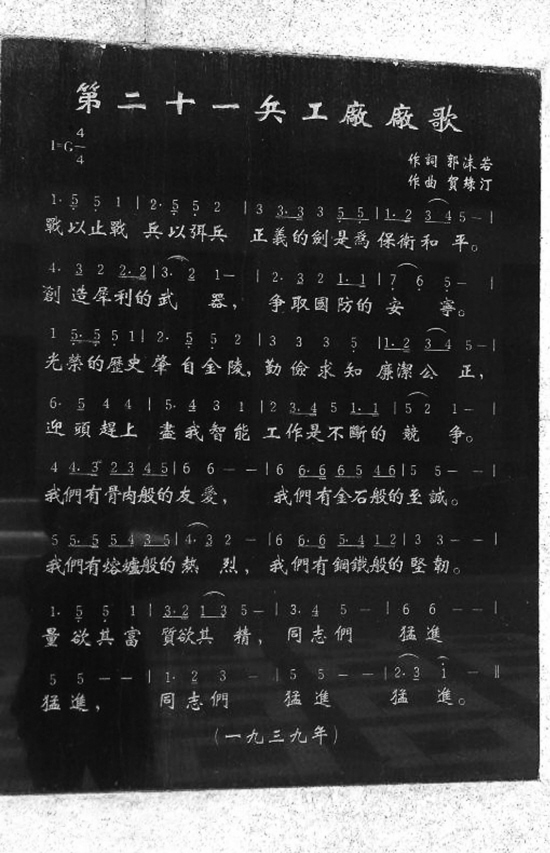 第二十一兵工廠廠歌
1=G 4/4
作詞 郭沫若
作曲 賀綠汀
1· 5 5 1 | 2· 5 5 2 | 3 3·3 3 5 5 | 1·2 3 4 5 — |
戰以止戰 兵以弭兵 正義的劍是爲保衛和平。
4· 3 2 2·2 | 3· 2 1 — | 2· 3 2 1·1 | 7 6 5 — |
創造犀利的武器，爭取國防的安寧。
1 5·5 5 1 | 2· 5 5 2 | 3 3 3 5 | 1·2 3 4 5 — |
光榮的歷史肇自金陵，勤儉求知 廉潔公正，
6· 5 4 4 | 5· 4 3 1 | 2 3·4 5 1·1 | 5 2 1 — |
迎頭趕上 盡我智能 工作是不斷的競爭。
4 4·3 2 3 4 5 | 6 6 — — | 6 6·6 6 5 4 6 | 5 5 — — |
我們有骨肉般的友愛，我們有金石般的至誠。
5 5·5 5 4 3 5 | 4·3 2 — | 6 6·6 5·4 1 2 | 3 3 — — |
我們有熔爐般的熱烈，我們有鋼鐵般的堅韌。
1· 5 5 1 | 3·2 1 3 5 — | 3· 4 5 — | 6 6 — — |
量欲其富 質欲其精，同志們 猛進
5 5 — — | 1· 2 3 — | 5 5 — — | 2·3 1 — ‖
猛進，同志們 猛進 猛進。
(一九三九年)